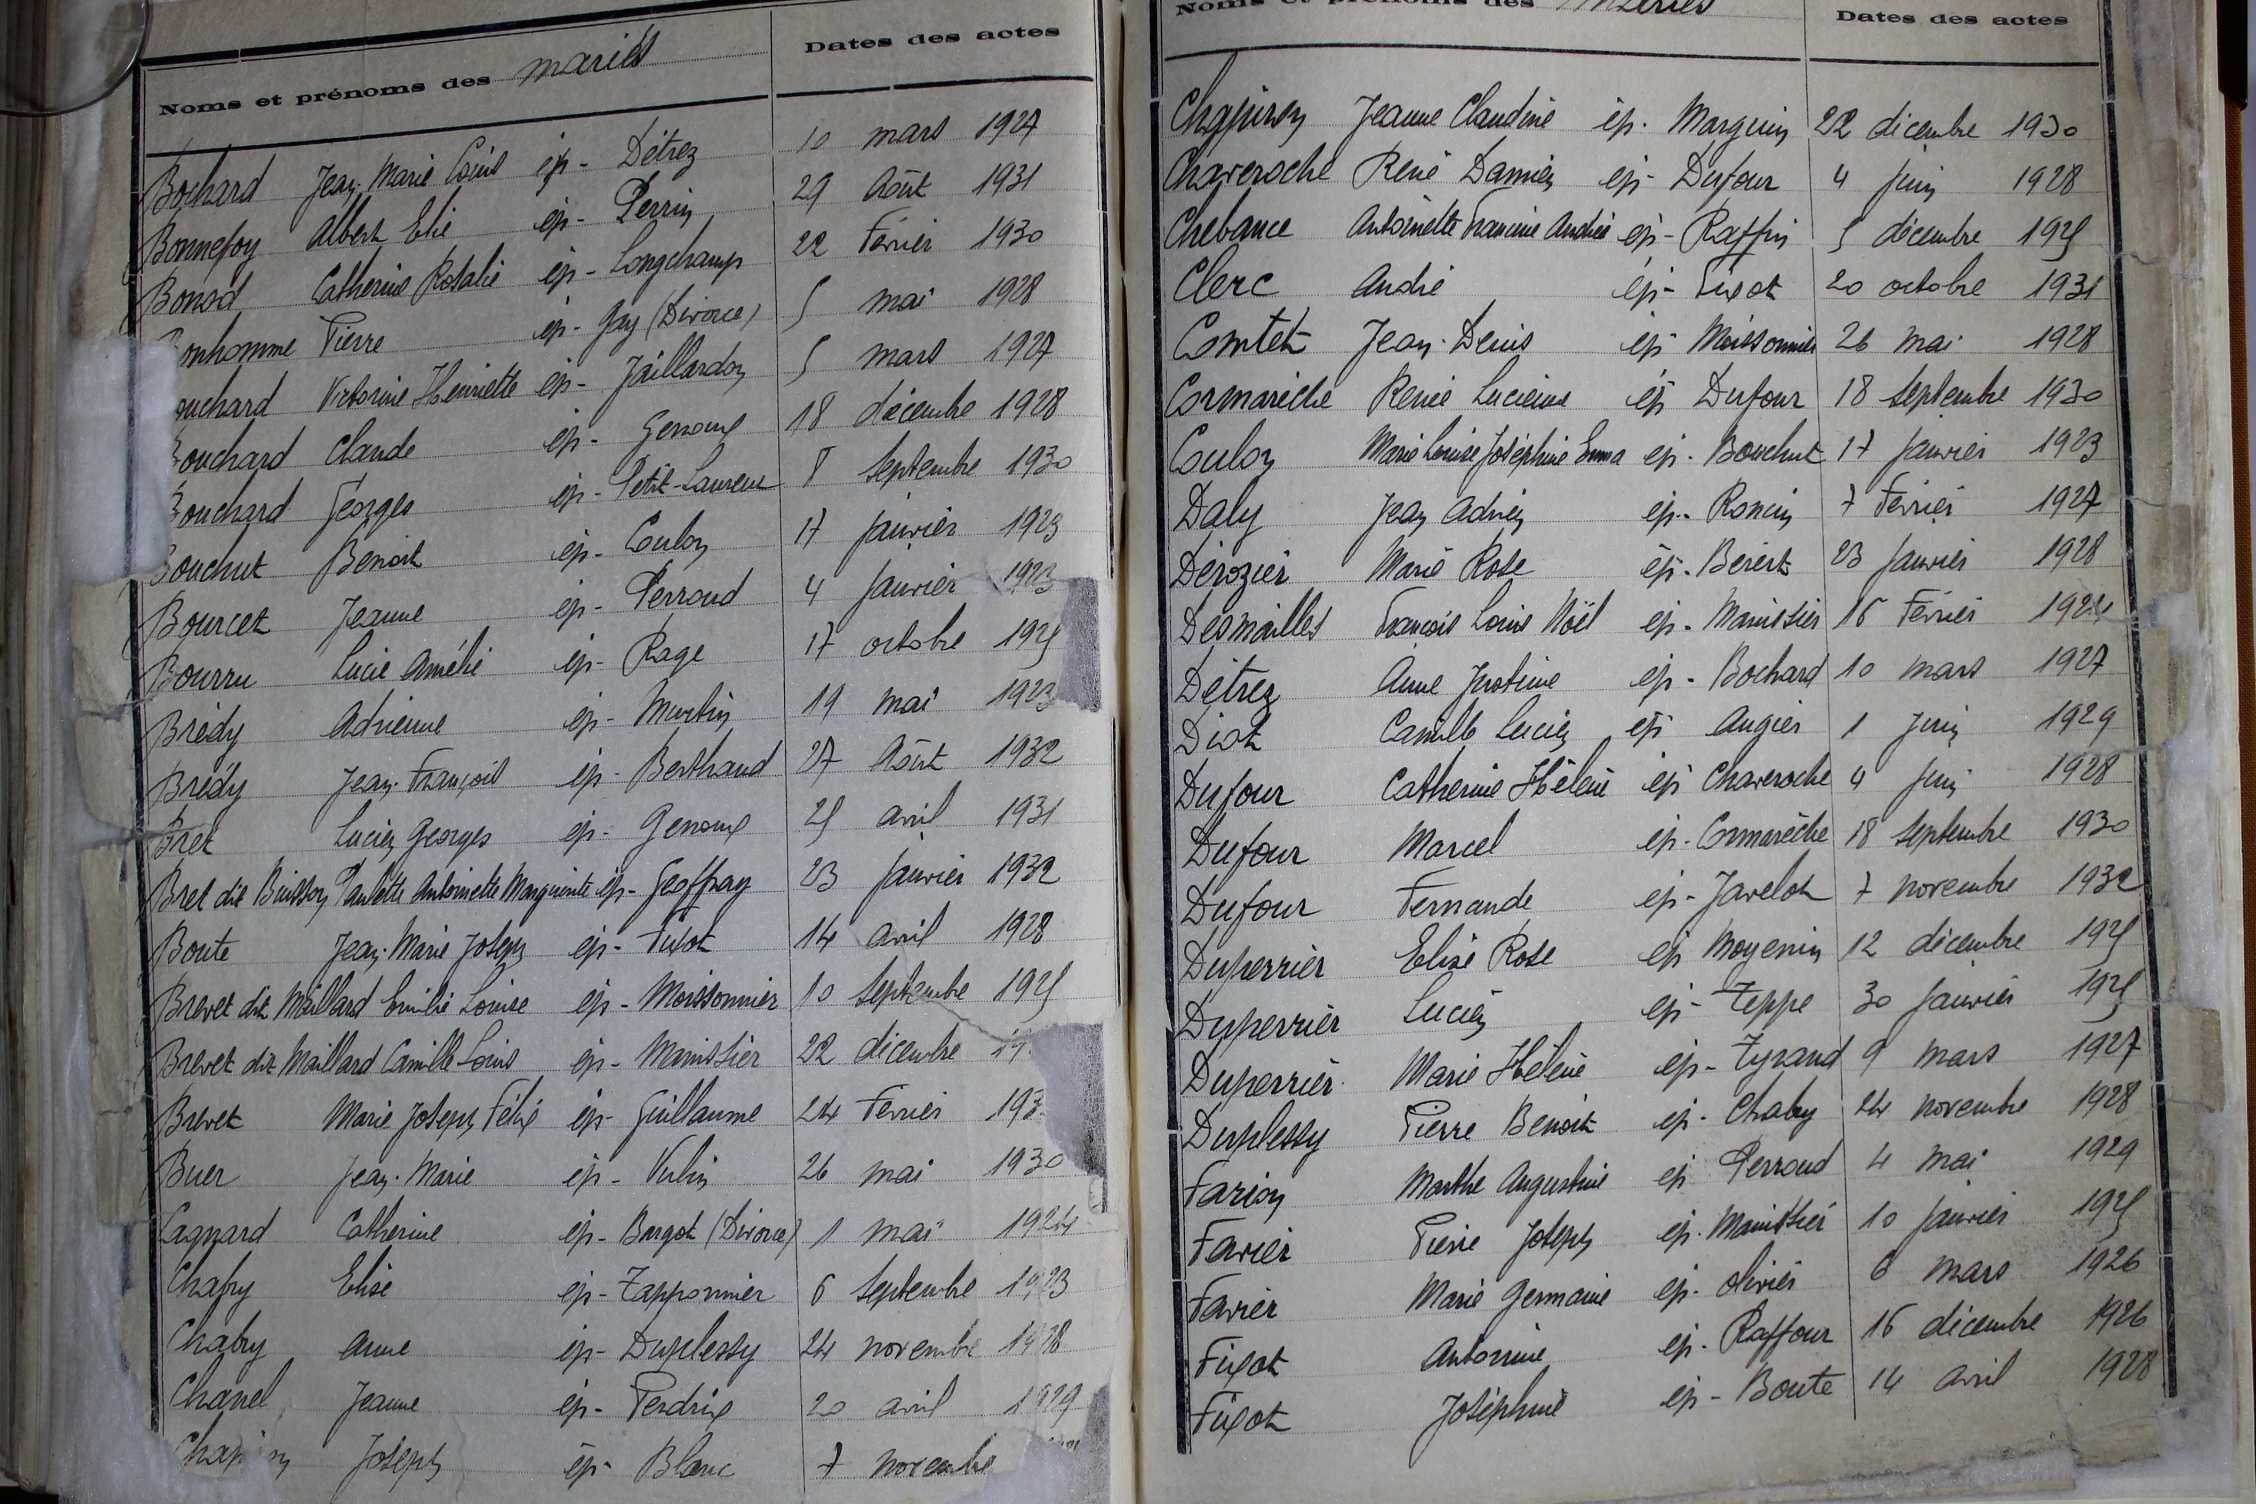 Noms et prénoms des mariés Dates des actes
Bochard Jean-Marie Louis ép- Détrez 10 mars 1927
Bonnefoy Albert Elie ép- Perrin 29 Août 1931
Bonod Catherine Rosalie ép- Longchamp 22 Février 1930
onhomme Pierre ép- Gay (Divorce) 5 mai 1928
ouchard Victorine Henriette ép- Jaillardon 5 mars 1927
Bouchard Claude ép- Genoux 18 décembre 1928
Bouchard Georges ép- Petit-Laurent 8 septembre 1930
Bouchut Benoit ép- Coulon 17 janvier 1923
Bourcet Jeanne ép- Perroud 4 janvier 1923
Bourru Lucie Amélie ép- Rage 17 octobre 1925
Brédy Adrienne ép- Martin 19 mai 1923
Brédy Jean-François ép- Berthaud 27 Août 1932
Bret Lucien Georges ép- Genoux 25 avril 1931
Bret dit Buisson Paulette Antoinette Marguerite ép- Geoffray 23 janvier 1932
Boute Jean-Marie Joseph ép- Fixot 14 avril 1928
Brevet dit Maillard Emilie Louise ép- Moissonnier 10 septembre 1925
Brevet dit Maillard Camille Louis ép- Manissier 22 décembre 19
Brevet Marie Joseph Félix ép- Guillaume 24 Février 193
Buer Jean-Marie ép- Vulin 26 mai 1930
Cagnard Catherine ép- Bargot (Divorce) 1 mai 1924
Chabry Elise ép- Tapponnier 6 septembre 1923
Chabry Anne ép- Duplessy 24 novembre 1928
Chanel Jeanne ép- Perdrix 20 avril 1929
Joseph ép- Blanc 7 novembre
Noms et prénoms des mariés Dates des actes
Jeanne Claudine ép- Marguin 22 décembre 1930
Chaveroche René Damien ép- Dufour 4 juin 1928
Chebance Antoinette Francine Andrée ép- Raffin 5 décembre 1925
Clerc André ép- Fixot 20 octobre 1931
Comtet Jean-Denis ép- Moissonnier 26 mai 1928
Cormarèche Renée Lucienne ép- Dufour 18 septembre 1930
Coulon Marie Louise Joséphine Emma ép- Bouchut 17 janvier 1923
Daly Jean Adrien ép- Roncin 7 Février 1927
Dérozier Marie Rose ép- Bérert 23 janvier 1928
Desmailles François Louis Noël ép- Manissier 16 Février 1924
Détrez Anne Justine ép- Bochard 10 mars 1927
Diot Camille Lucien ép- Augier 1 juin 1929
Dufour Catherine Hélène ép Chaveroche 4 juin 1928
Dufour Marcel ép- Cormarèche 18 septembre 1930
Dufour Fernande ép- Javelot 7 novembre 1932
Duperrier Elise Rose ép Moyenin 12 décembre 1925
Duperrier Lucien ép- Teppe 30 janvier 1925
Duperrier Marie Hélène ép- Tyrand 9 mars 1927
Duplessy Pierre Benoit ép- Chabry 24 novembre 1928
Farion Marthe Augustine ép Perroud 4 mai 1929
Favier Pierre Joseph ép- Manissier 10 janvier 1925
Favier Marie Germaine ép- Olivier 6 mars 1926
Fixot Antonine ép- Raffour 16 décembre 1926
Fixot Joséphine ép- Boute 14 avril 1928